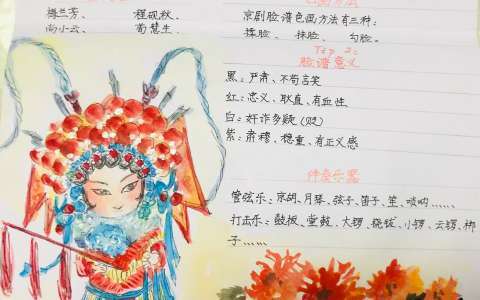 梅兰芳、 程砚秋、
尚小云、 荀慧生
画方法
京剧脸谱色画方法有三种:
揉脸、抹脸、勾脸。
Top 2:
脸谱意义
黑:严肃、不苟言笑
红:忠义、耿直、有血性
白:奸诈多疑(贬)
紫:肃穆、稳重、有正义感
伴奏乐器
管弦乐:京胡、月琴、弦子、笛子、笙、唢呐......
打击乐:鼓板、堂鼓、大锣、铙钹、小锣、云锣、梆
子......